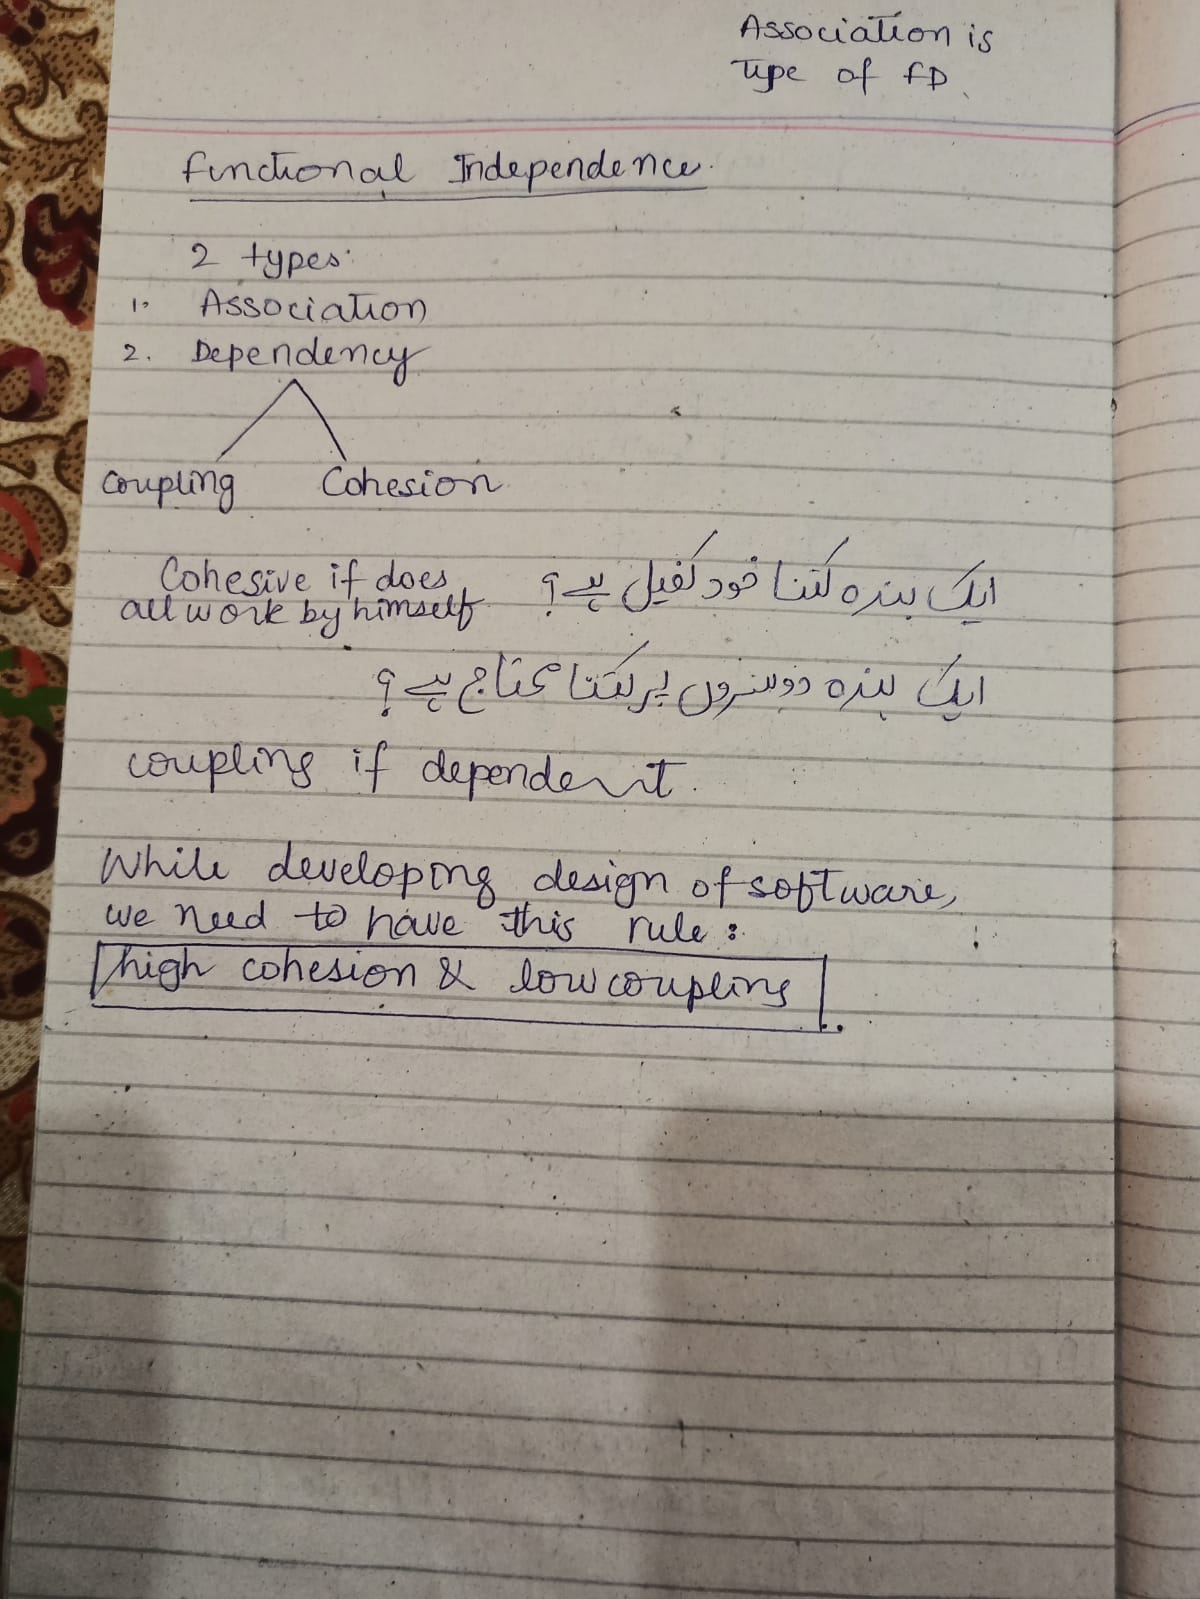 Association is
Type of FD
Functional Independence.
2 types.
1. Association
2. Dependency
Coupling Cohesion
Cohesive if does
all work by himself
ایک بندہ کتنا خود کفیل ہے؟
ایک بندہ دوسروں پر کتنا محتاج ہے؟
coupling if dependent.
While developing design of software,
we need to have this rule:
high cohesion & low coupling